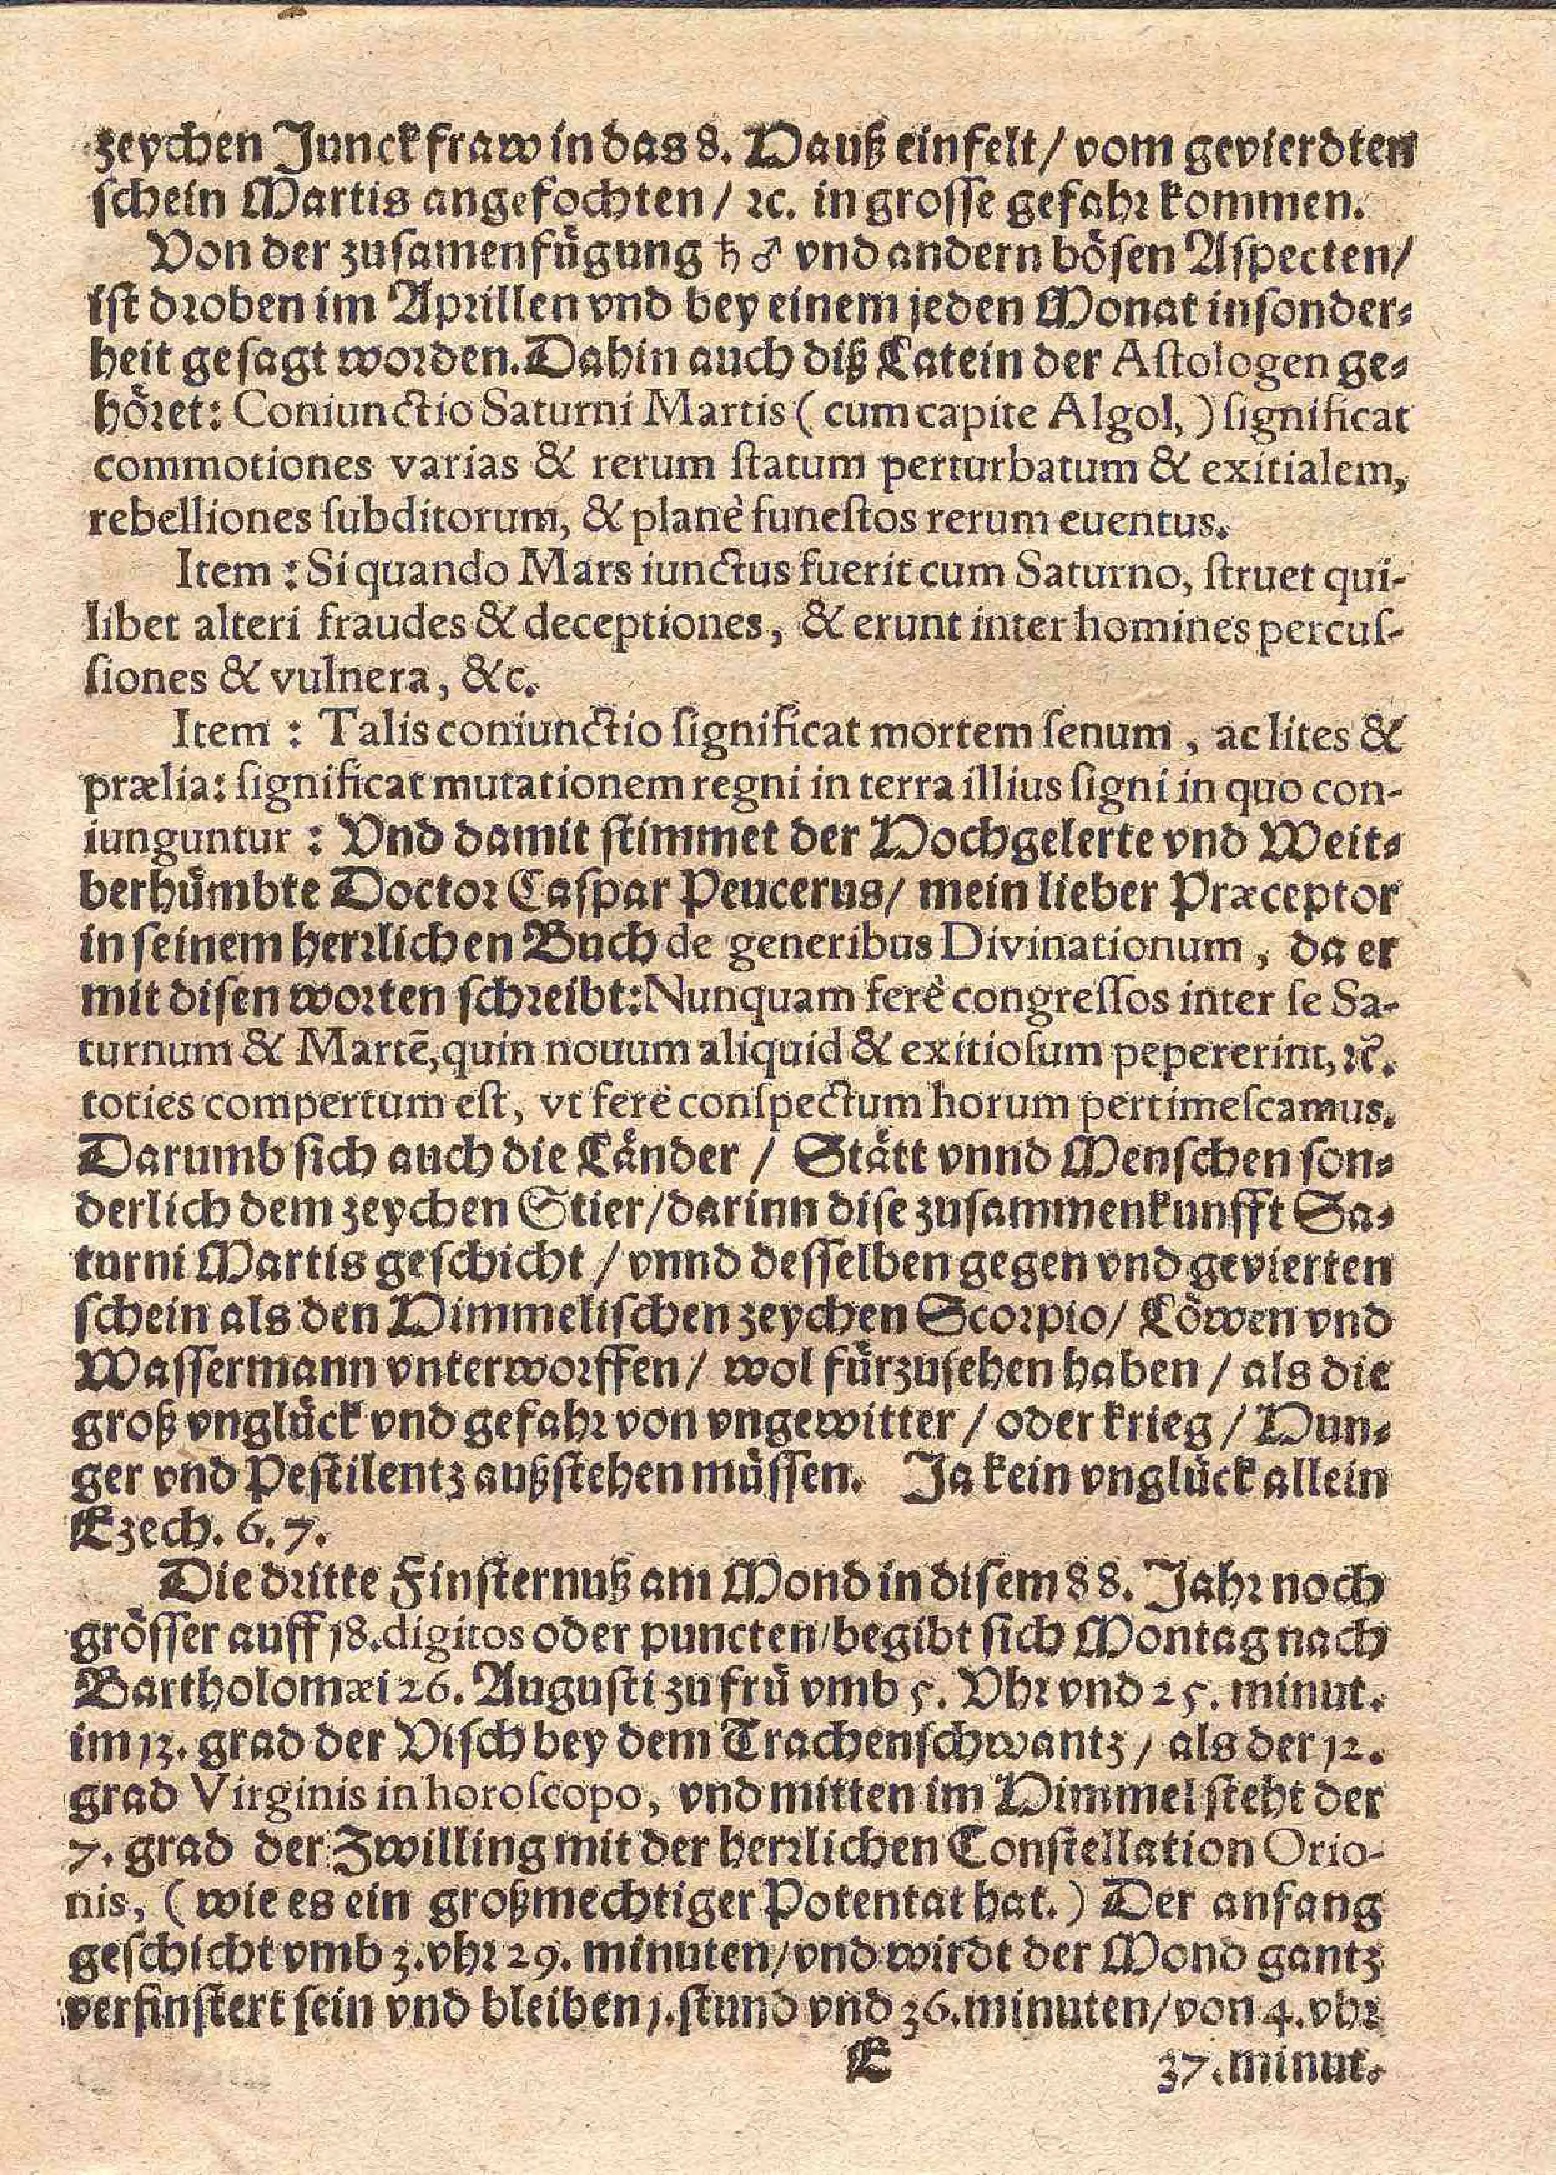 zeychen Junckfraw in das 8. Hauß einfelt/ vom gevierdten
schein Martis angefochten/ ꝛc. in grosse gefahr kommen.
Von der zusamenfuͤgung ♄ ♂ vnd andern boͤsen Aspecten/
ist droben im Aprillen vnd bey einem jeden Monat insonder-
heit gesagt worden. Dahin auch diß Latein der Astologen ge-
hoͤret: Coniunctio Saturni Martis ( cum capite Algol, ) significat
commotiones varias & rerum statum perturbatum & exitialem,
rebelliones subditorum, & planè funestos rerum euentus.
Item : Si quando Mars iunctus fuerit cum Saturno, struet qui-
libet alteri fraudes & deceptiones, & erunt inter homines percus-
siones & vulnera, &c.
Item : Talis coniunctio significat mortem senum , ac lites &
prælia: significat mutationem regni in terra illius signi in quo con-
iunguntur : Vnd damit stimmet der Hochgelerte vnd Weit-
berhuͤmbte Doctor Caspar Peucerus/ mein lieber Præceptor
in seinem herrlichen Buch de generibus Divinationum , da er
mit disen worten schreibt: Nunquam ferè congressos inter se Sa-
turnum & Martẽ, quin nouum aliquid & exitiosum pepererint, ꝛc.
toties compertum est, vt ferè conspectum horum pertimescamus.
Darumb sich auch die Laͤnder / Staͤtt vnnd Menschen son-
derlich dem zeychen Stier/darinn dise zusammenkunfft Sa-
turni Martis geschicht / vnnd desselben gegen vnd gevierten
schein als den Himmelischen zeychen Scorpio/ Loͤwen vnd
Wassermann vnterworffen/ wol fuͤrzusehen haben / als die
groß vngluͤck vnd gefahr von vngewitter / oder krieg / Hun-
ger vnd Pestilentz außstehen muͤssen. Ja kein vngluͤck allein
Ezech. 6. 7.
Die dritte Finsternuß am Mond in disem 88. Jahr noch
groͤsser auff 18. digitos oder puncten/begibt sich Montag nach
Bartholomæi 26. Augusti zu fruͤ vmb 5. Vhr vnd 25. minut.
im 13. grad der Visch bey dem Trachenschwantz / als der 12.
grad Virginis in horoscopo, vnd mitten im Himmel steht der
7. grad der Zwilling mit der herrlichen Constellation Orio-
nis, ( wie es ein großmechtiger Potentat hat. ) Der anfang
geschicht vmb 3. vhr 29. minuten/vnd wirdt der Mond gantz
verfinstert sein vnd bleiben 1. stund vnd 36. minuten/von 4. vhr
E 37. minut.